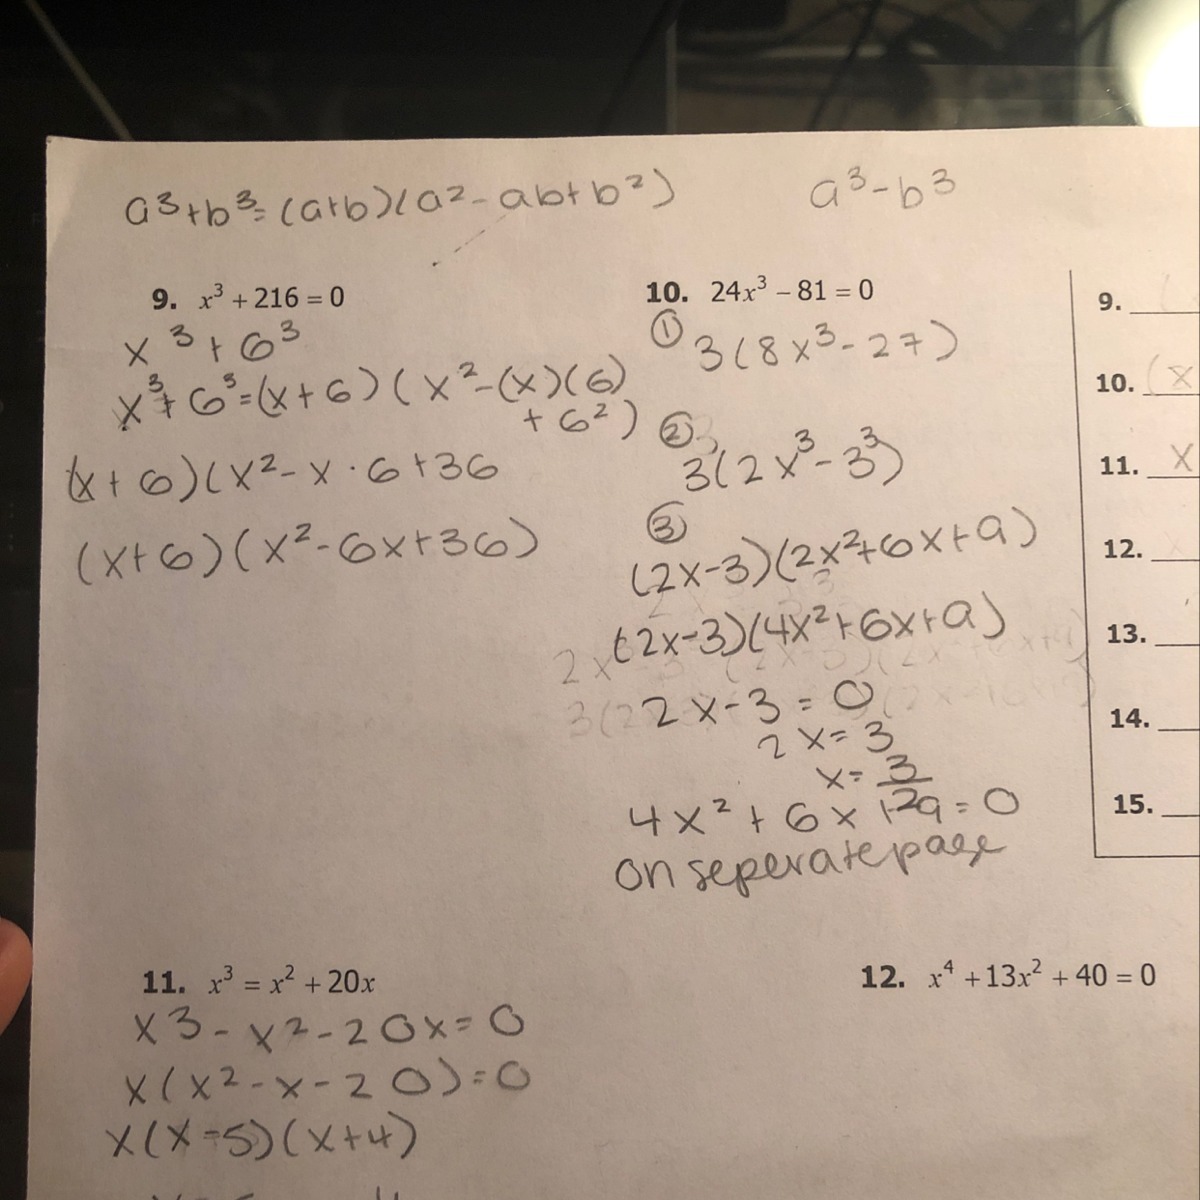 a³+b³=(a+b)(a²-ab+b²) a³-b³
9. x³ + 216 = 0
x³+6³
x³+6³=(x+6)(x²-(x)(6)
+6²)
(x+6)(x²-x·6+36
(x+6)(x²-6x+36)
10. 24x³ – 81 = 0
① 3(8x³-27)
②
3(2x³-3³)
③
(2x-3)(2x²+6x+9)
(2x-3)(4x²+6x+9)
2x-3=0
2x=3
x=3/2
4x²+6x+9=0
on seperate page
9.
10. (x
11. x
12.
13.
14.
15.
11. x³ = x² + 20x
x3-x²-20x=0
x(x²-x-20)=0
x(x-5)(x+4)
12. x⁴ + 13x² + 40 = 0